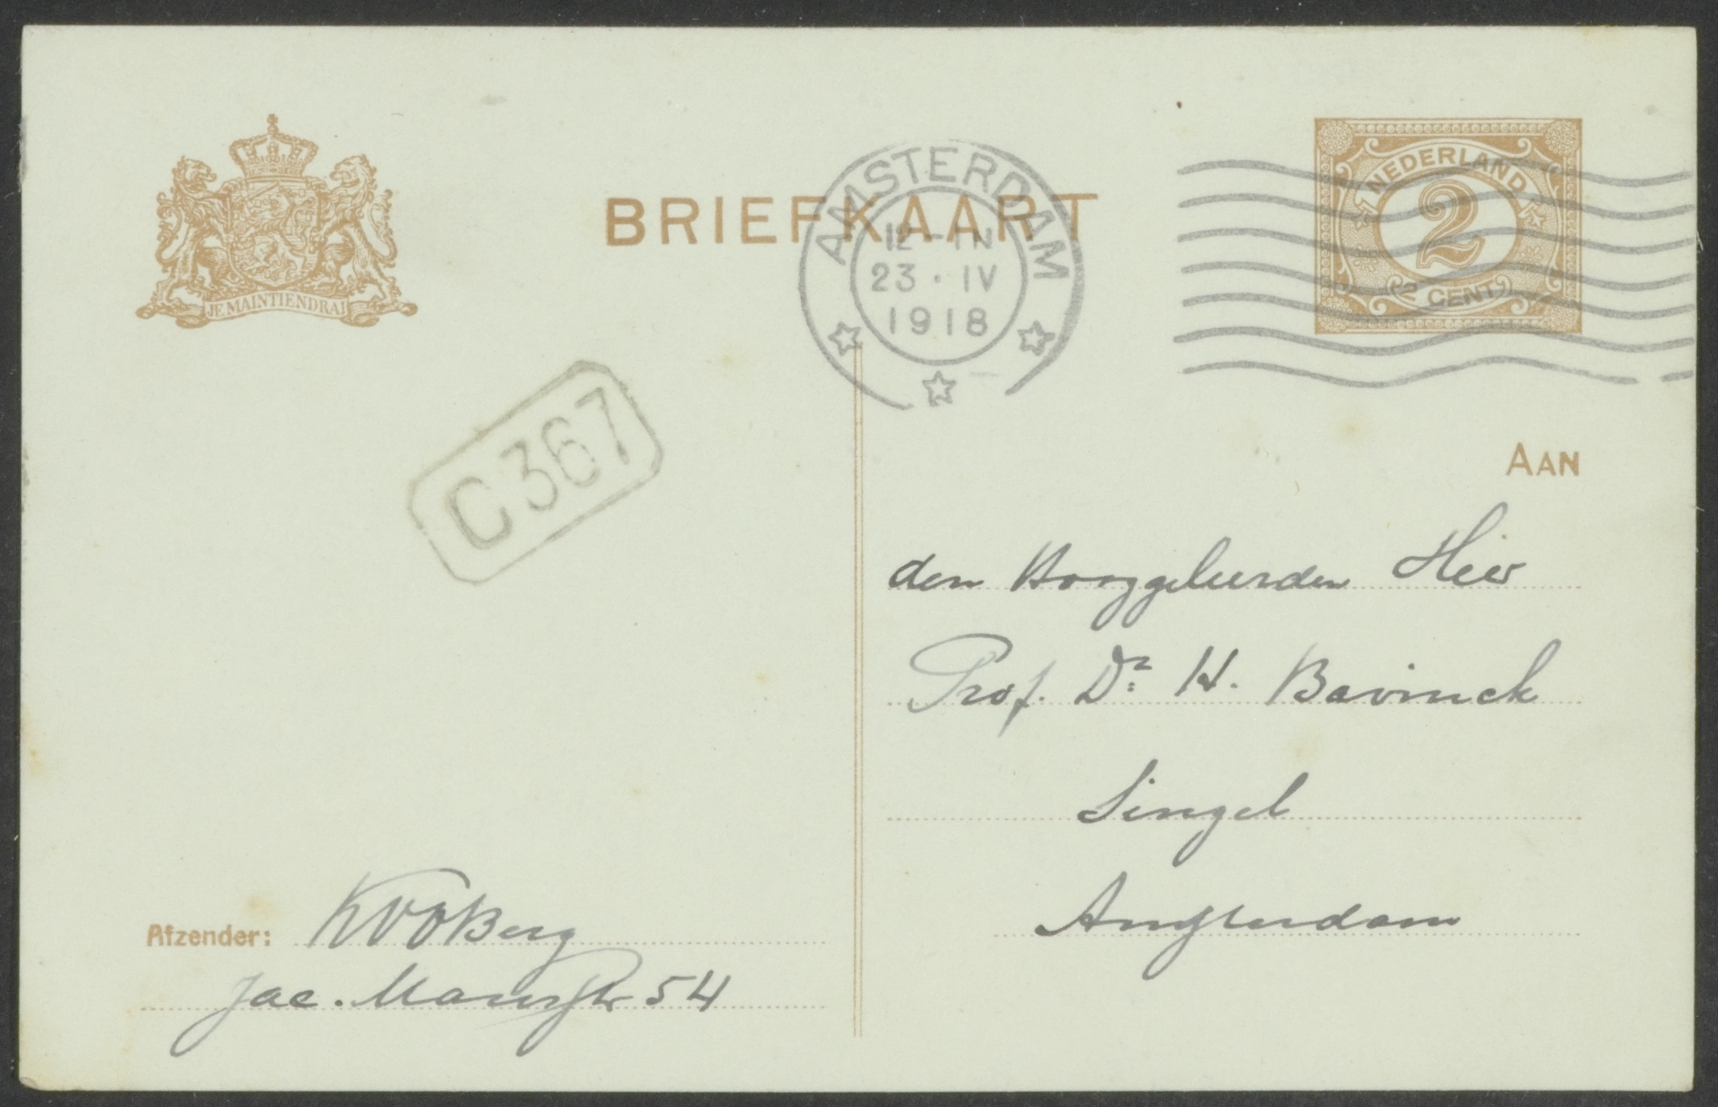 JE MAINTIENDRAI
BRIEFKAART
AMSTERDAM
12-1N
23·IV
1918
NEDERLAND
2
2 CENT 2
C367
AAN
den Hooggeleerden Heer
Prof. Dr. H. Bavinck
Singel
Amsterdam
Afzender: KvdBerg
Jac. Marisstr 54